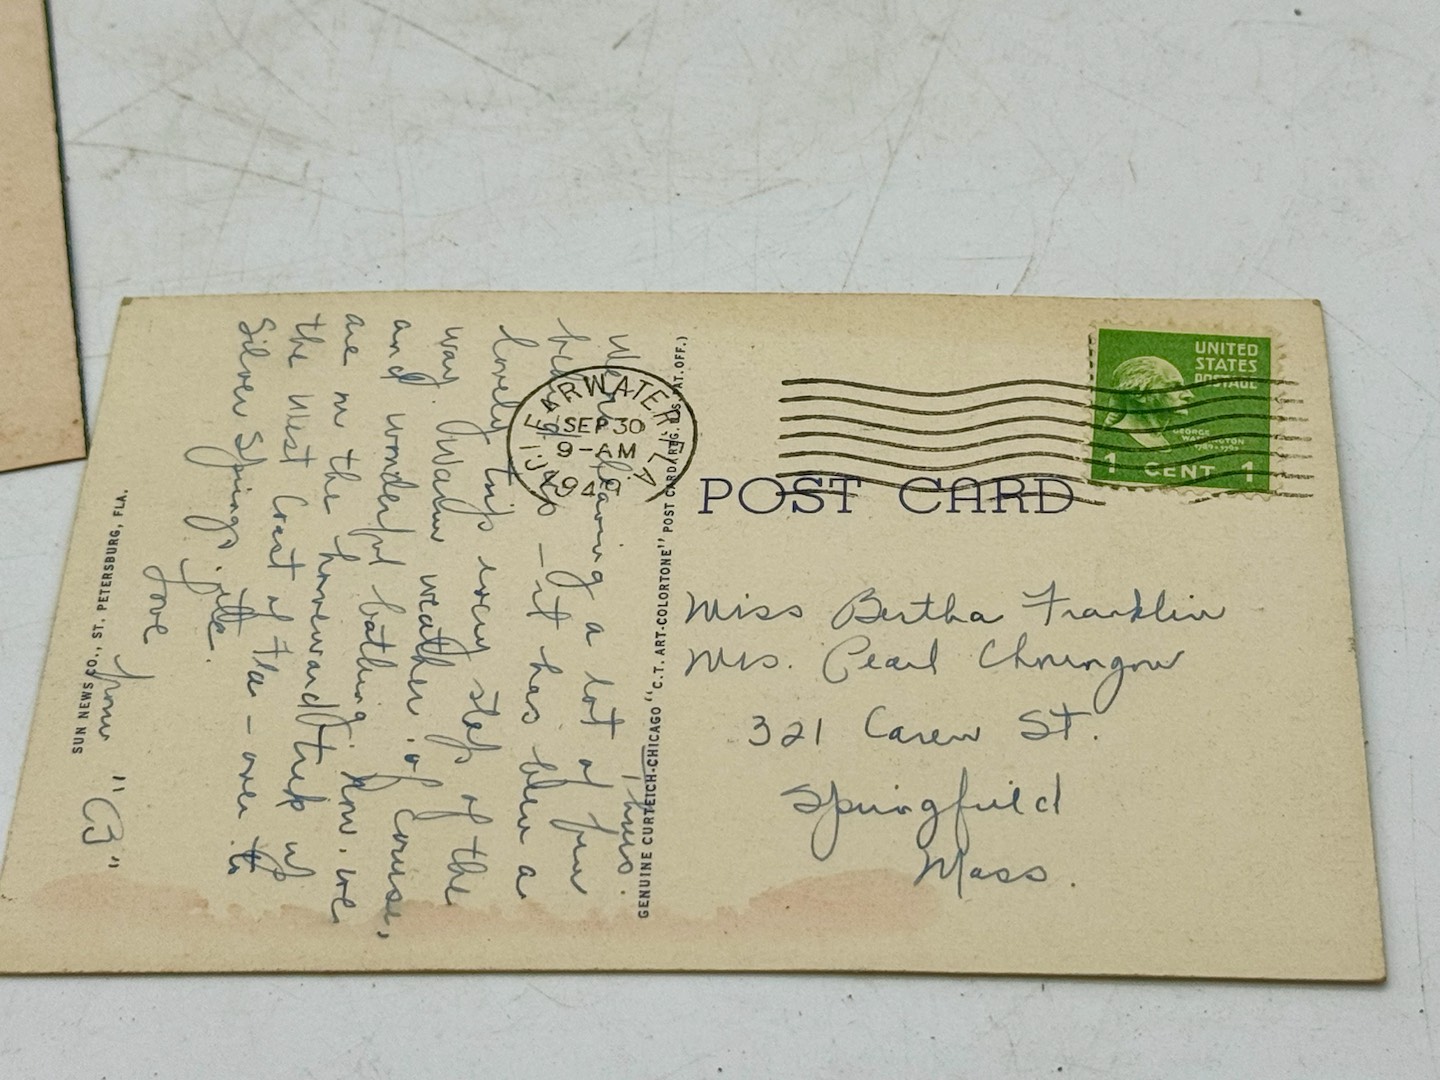 Thurs.
We're having a lot of fun
- it has been a
lovely trip every step of the
way. Warm weather, of course,
and wonderful bathing. Now, we
are on the homeward trip up
the West Coast of Fla - over to
Silver Springs.
Love from "C3"
SUN NEWS CO., ST. PETERSBURG, FLA.
GENUINE CURTEICH-CHICAGO "C.T. ART-COLORTONE" POST CARD (REG. U.S. PAT. OFF.)
CLEARWATER FLA
SEP 30
9-AM
1949
UNITED
STATES
POSTAGE
GEORGE
WASHINGTON
1 CENT 1
POST CARD
Miss Bertha Franklin
Mrs. Pearl
321 Carew St.
Springfield
Mass.